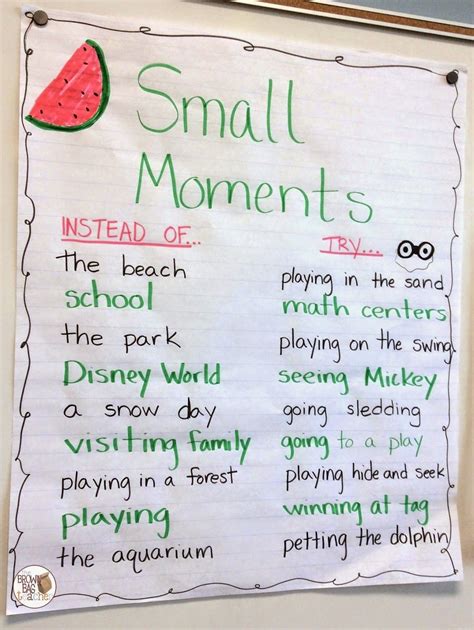 Small
Moments
INSTEAD OF... TRY...
the beach playing in the sand
school math centers
the park playing on the swing
Disney World seeing Mickey
a snow day going sledding
visiting family going to a play
playing in a forest playing hide and seek
playing winning at tag
the aquarium petting the dolphin
BROWN
BAG
teacher